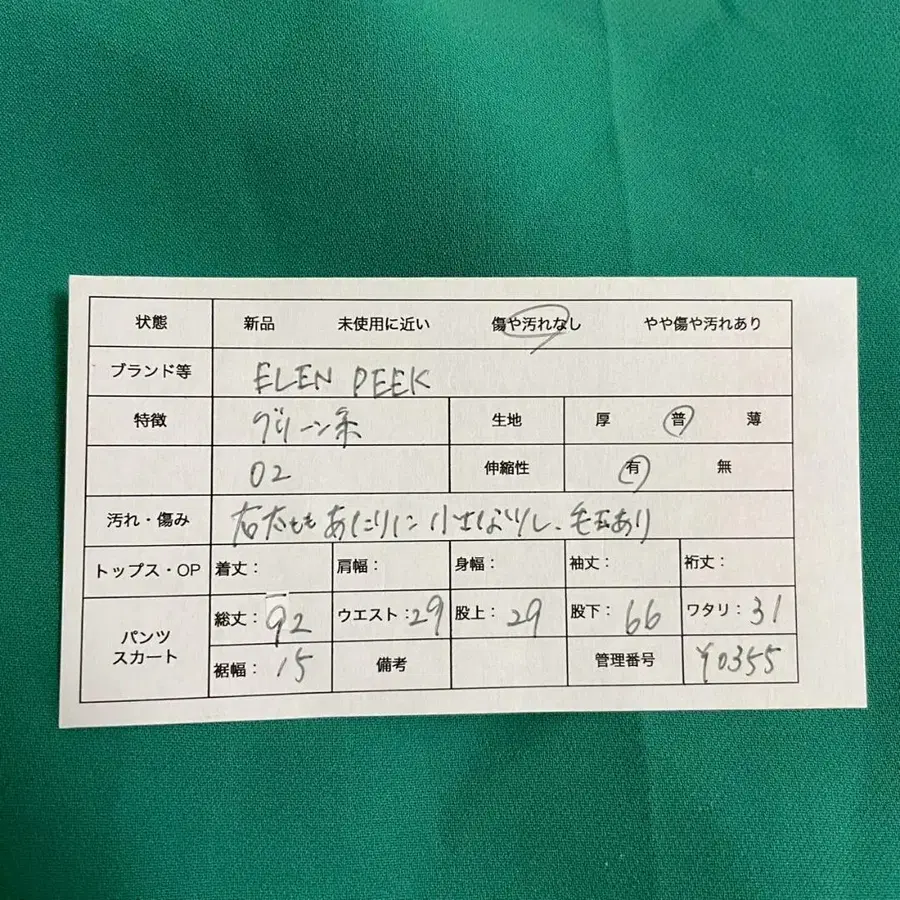 状態 新品 未使用に近い 傷や汚れなし やや傷や汚れあり
ブランド等 ELEN PEEK
特徴 グリーン系 生地 厚 普 薄
02 伸縮性 有 無
汚れ・傷み 右太ももあたりに小さなツレ、毛玉あり
トップス・OP 着丈: 肩幅: 身幅: 袖丈: 裄丈:
パンツ スカート 総丈: 92 ウエスト: 29 股上: 29 股下: 66 ワタリ: 31
裾幅: 15 備考 管理番号 Y0355